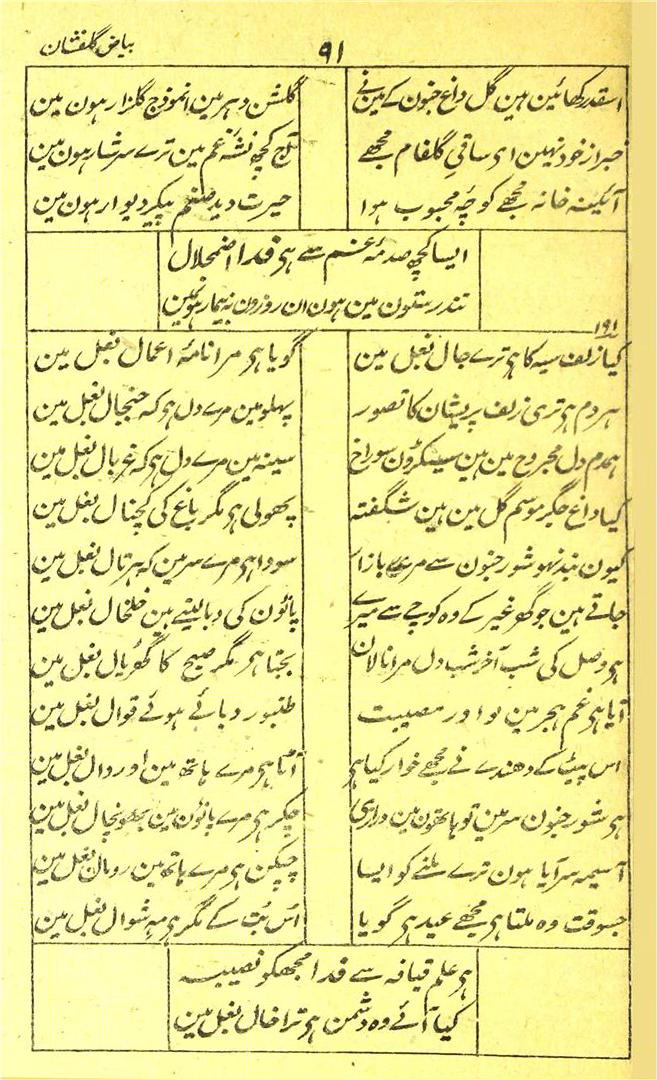 بیاض گلفشان
۹۱
اسقدر کھائین ہین گل داغ جنون کے مین نے گلشن دہر مین انموذج گلزار ہون مین
خبر از خود نہین ای ساقیِ گلفام مجھے آج کچھ نشۂ غم مین ترے سرشار ہون مین
آئینہ خانہ مجھے کوچۂ محبوب ہوا حیرت دید صنم پیکر دیوار ہون مین
ایسا کچھ صدمۂ غم سے ہی فدا اضمحلال
تندرستون مین ہون ان روزون نہ بیمارونمین
۱۹۱
کیا زلف سیہ کا ہی ترے جال بغل مین گویا ہی مرا نامۂ اعمال بغل مین
ہردم ہی تری زلف پریشان کا تصور پہلو مین مرے دل ہی کہ جنجال بغل مین
ہمدم دل مجروح مین ہین سیکڑون سوراخ سینہ مین مرے دل ہی کہ غربال بغل مین
کیا داغ جگر موسم گل مین ہین شگفتہ پھولی ہی مگر باغ کی کچنال بغل مین
کیون بند نہو شور جنون سے مرے بازار سودا ہی مرے سر مین کہ ہرتال بغل مین
جاتے ہین جو گھر غیر کے وہ کوچے سے میرے پائون کی دبا لیتے ہین خلخال بغل مین
ہی وصل کی شب آخر شب دل مرا نالان بجتا ہی مگر صبح کا گھڑیال بغل مین
آیا ہی غم ہجر مین اور مصیبت طنبور دبائے ہوئے قوال بغل مین
اس پیٹ کے دھندے نے مجھے خوار کیا ہی آٹا ہی مرے ہاتھ مین اور دال بغل مین
ہی شور جنون سر مین تو ہاتھون مین چکر ہی مرے پائون مین بھونچال بغل مین
آسیمہ سر آیا ہون ترے ملنے کو ایسا چپکن ہی مرے ہاتھ مین رومال بغل مین
جسوقت وہ ملتا ہی مجھے عید ہی گویا اس بت کے مگر ہی مہِ شوال بغل مین
ہی علم قیافہ سے فدا مجھکو نصیب
کیا آئے وہ دشمن ہی ترا خال بغل مین